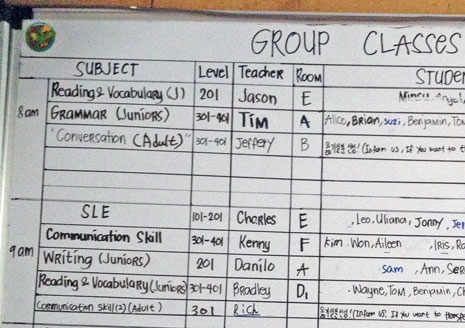 GROUP CLASSES
SUBJECT Level Teacher ROOM STUDE
8am
Reading & Vocabulary (J) 201 Jason E
GRAMMAR (Juniors) 301-401 TIM A Alice, Brian, Suzi, Benjamin, Tom
"Conversation (Adult)" 301-401 Jeffery B (Inform us, If you want to t
9am
SLE 101-201 Charles E , Leo, Uliana, Jonny, Jer
Communication Skill 301-401 Kenny F Kim Won, Aileen , Iris, Ro
Writing (Juniors) 201 Danilo A Sam, Ann, Ser
Reading & Vocabulary (Juniors) 301-401 Bradley D1 Wayne, Tom, Benjamin, Ch
Communication Skill(2) (Adult) 301 Rich (Inform us, If you want to